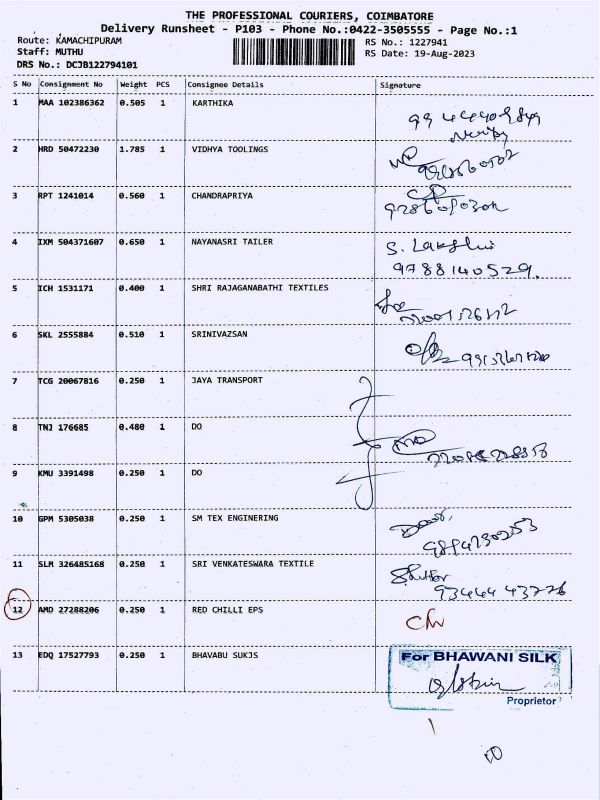 THE PROFESSIONAL COURIERS, COIMBATORE
Delivery Runsheet - P103 - Phone No.:0422-3505555 - Page No.:1
Route: KAMACHIPURAM RS No.: 1227941
Staff: MUTHU RS Date: 19-Aug-2023
DRS No.: DCJB122794101
S No Consignment No Weight PCS Consignee Details Signature
1 MAA 102386362 0.505 1 KARTHIKA
2 HRD 50472230 1.785 1 VIDHYA TOOLINGS
3 RPT 1241014 0.560 1 CHANDRAPRIYA
4 IXM 504371607 0.650 1 NAYANASRI TAILER S. Lakshmi
9788140529.
5 ICH 1531171 0.400 1 SHRI RAJAGANABATHI TEXTILES
6 SKL 2555884 0.510 1 SRINIVAZSAN
7 TCG 20067816 0.250 1 JAYA TRANSPORT
8 TNJ 176685 0.480 1 DO
9 KMU 3391498 0.250 1 DO
10 GPM 5305038 0.250 1 SM TEX ENGINERING
11 SLM 326485168 0.250 1 SRI VENKATESWARA TEXTILE
12 AMD 27288206 0.250 1 RED CHILLI EPS
13 EDQ 17527793 0.250 1 BHAVABU SUKJS For BHAWANI SILK
Proprietor